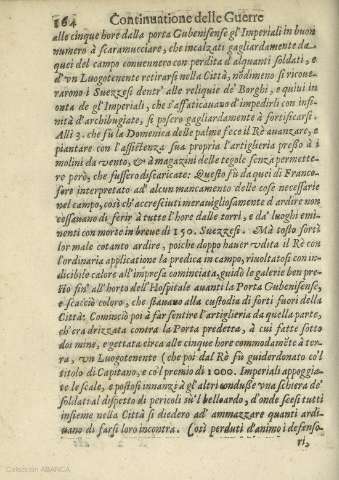 164 Continuatione delle Guerre
alle cinque hore dalla porta Gubenisense gl'Imperiali in buon
numero à scaramucciare, che incalzati gagliardamente da
quei del campo conuennero con perdita d'alquanti soldati, e
d'vn Luogotenente retirarsi nella Città, nõdimeno si ricoue-
rarono i Suezzesi dentr' alle reliquie de' Borghi, e quiui in
onta de gl'Imperiali, che s'affaticauano d'impedirli con infi-
nità d'archibugiate, si posero gagliardamente à fortificarsi.
Alli 3. che fù la Domenica delle palme fece il Rè auanzare, e
piantare con l'assistenza sua propria l'artiglieria presso à i
molini da vento, & à magazini delle tegole senza permette-
re però, che fussero discaricate: Questo fù da quei di Franco-
fore interpretato ad alcun mancamento delle cose necessarie
nel campo, così ch'accresciuti merauigliosamente d'ardire non
cessauano di ferir à tutte l'hore dalle torri, e da' luoghi emi-
nenti con morte in breue di 150. Suezzesi. Mà tosto sortì
lor male cotanto ardire, poiche doppo hauer vdita il Rè con
l'ordinaria applicatione la predica in campo, riuoltatosi con in-
dicibile calore all'impresa cominciata, guidò le galerie ben pre-
sto fin' all'horto dell'Hospitale auanti la Porta Gubenisense,
e scacciò coloro, che stauano alla custodia di forti fuori della
Città. Cominciò poi à far sentire l'artiglieria da quella parte,
ch'era drizzata contra la Porta predetta, à cui fatte sotto
doi mine, e gettata circa alle cinque hore commodamẽte à ter-
ra, vn Luogotenente (che poi dal Rè fù guiderdonato co'l
titolo di Capitano, e co'l premio di 1000. Imperiali appoggia-
te le scale, e postosi innanzi à gl'altri condusse vna schiera de'
soldati al dispetto di pericoli sù'l belloardo, d'onde scesi tutti
insieme nella Città si diedero ad ammazzare quanti ardi-
uano di farsi loro incontra. Così perduti d'animo i defenso-
ri,
Colección ABANCA